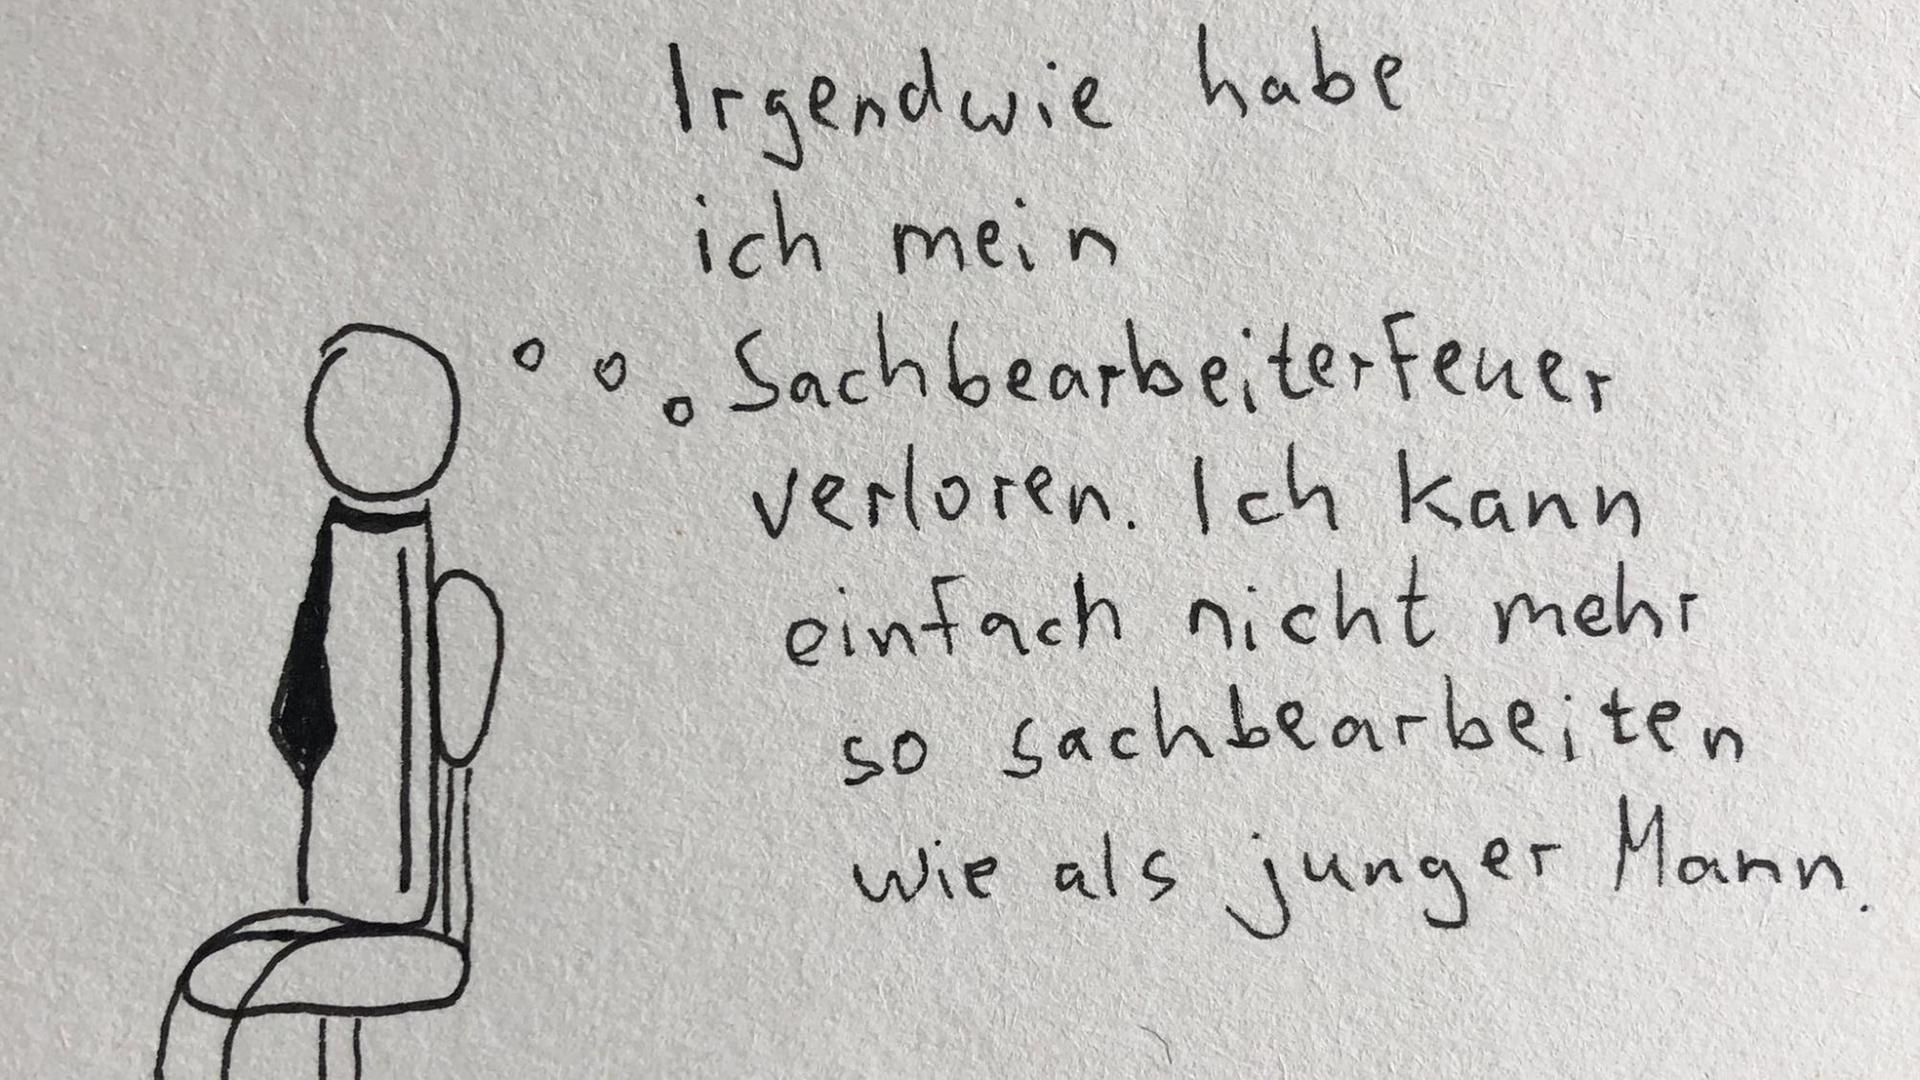 Irgendwie habe
ich mein
Sachbearbeiterfeuer
verloren. Ich kann
einfach nicht mehr
so sachbearbeiten
wie als junger Mann.